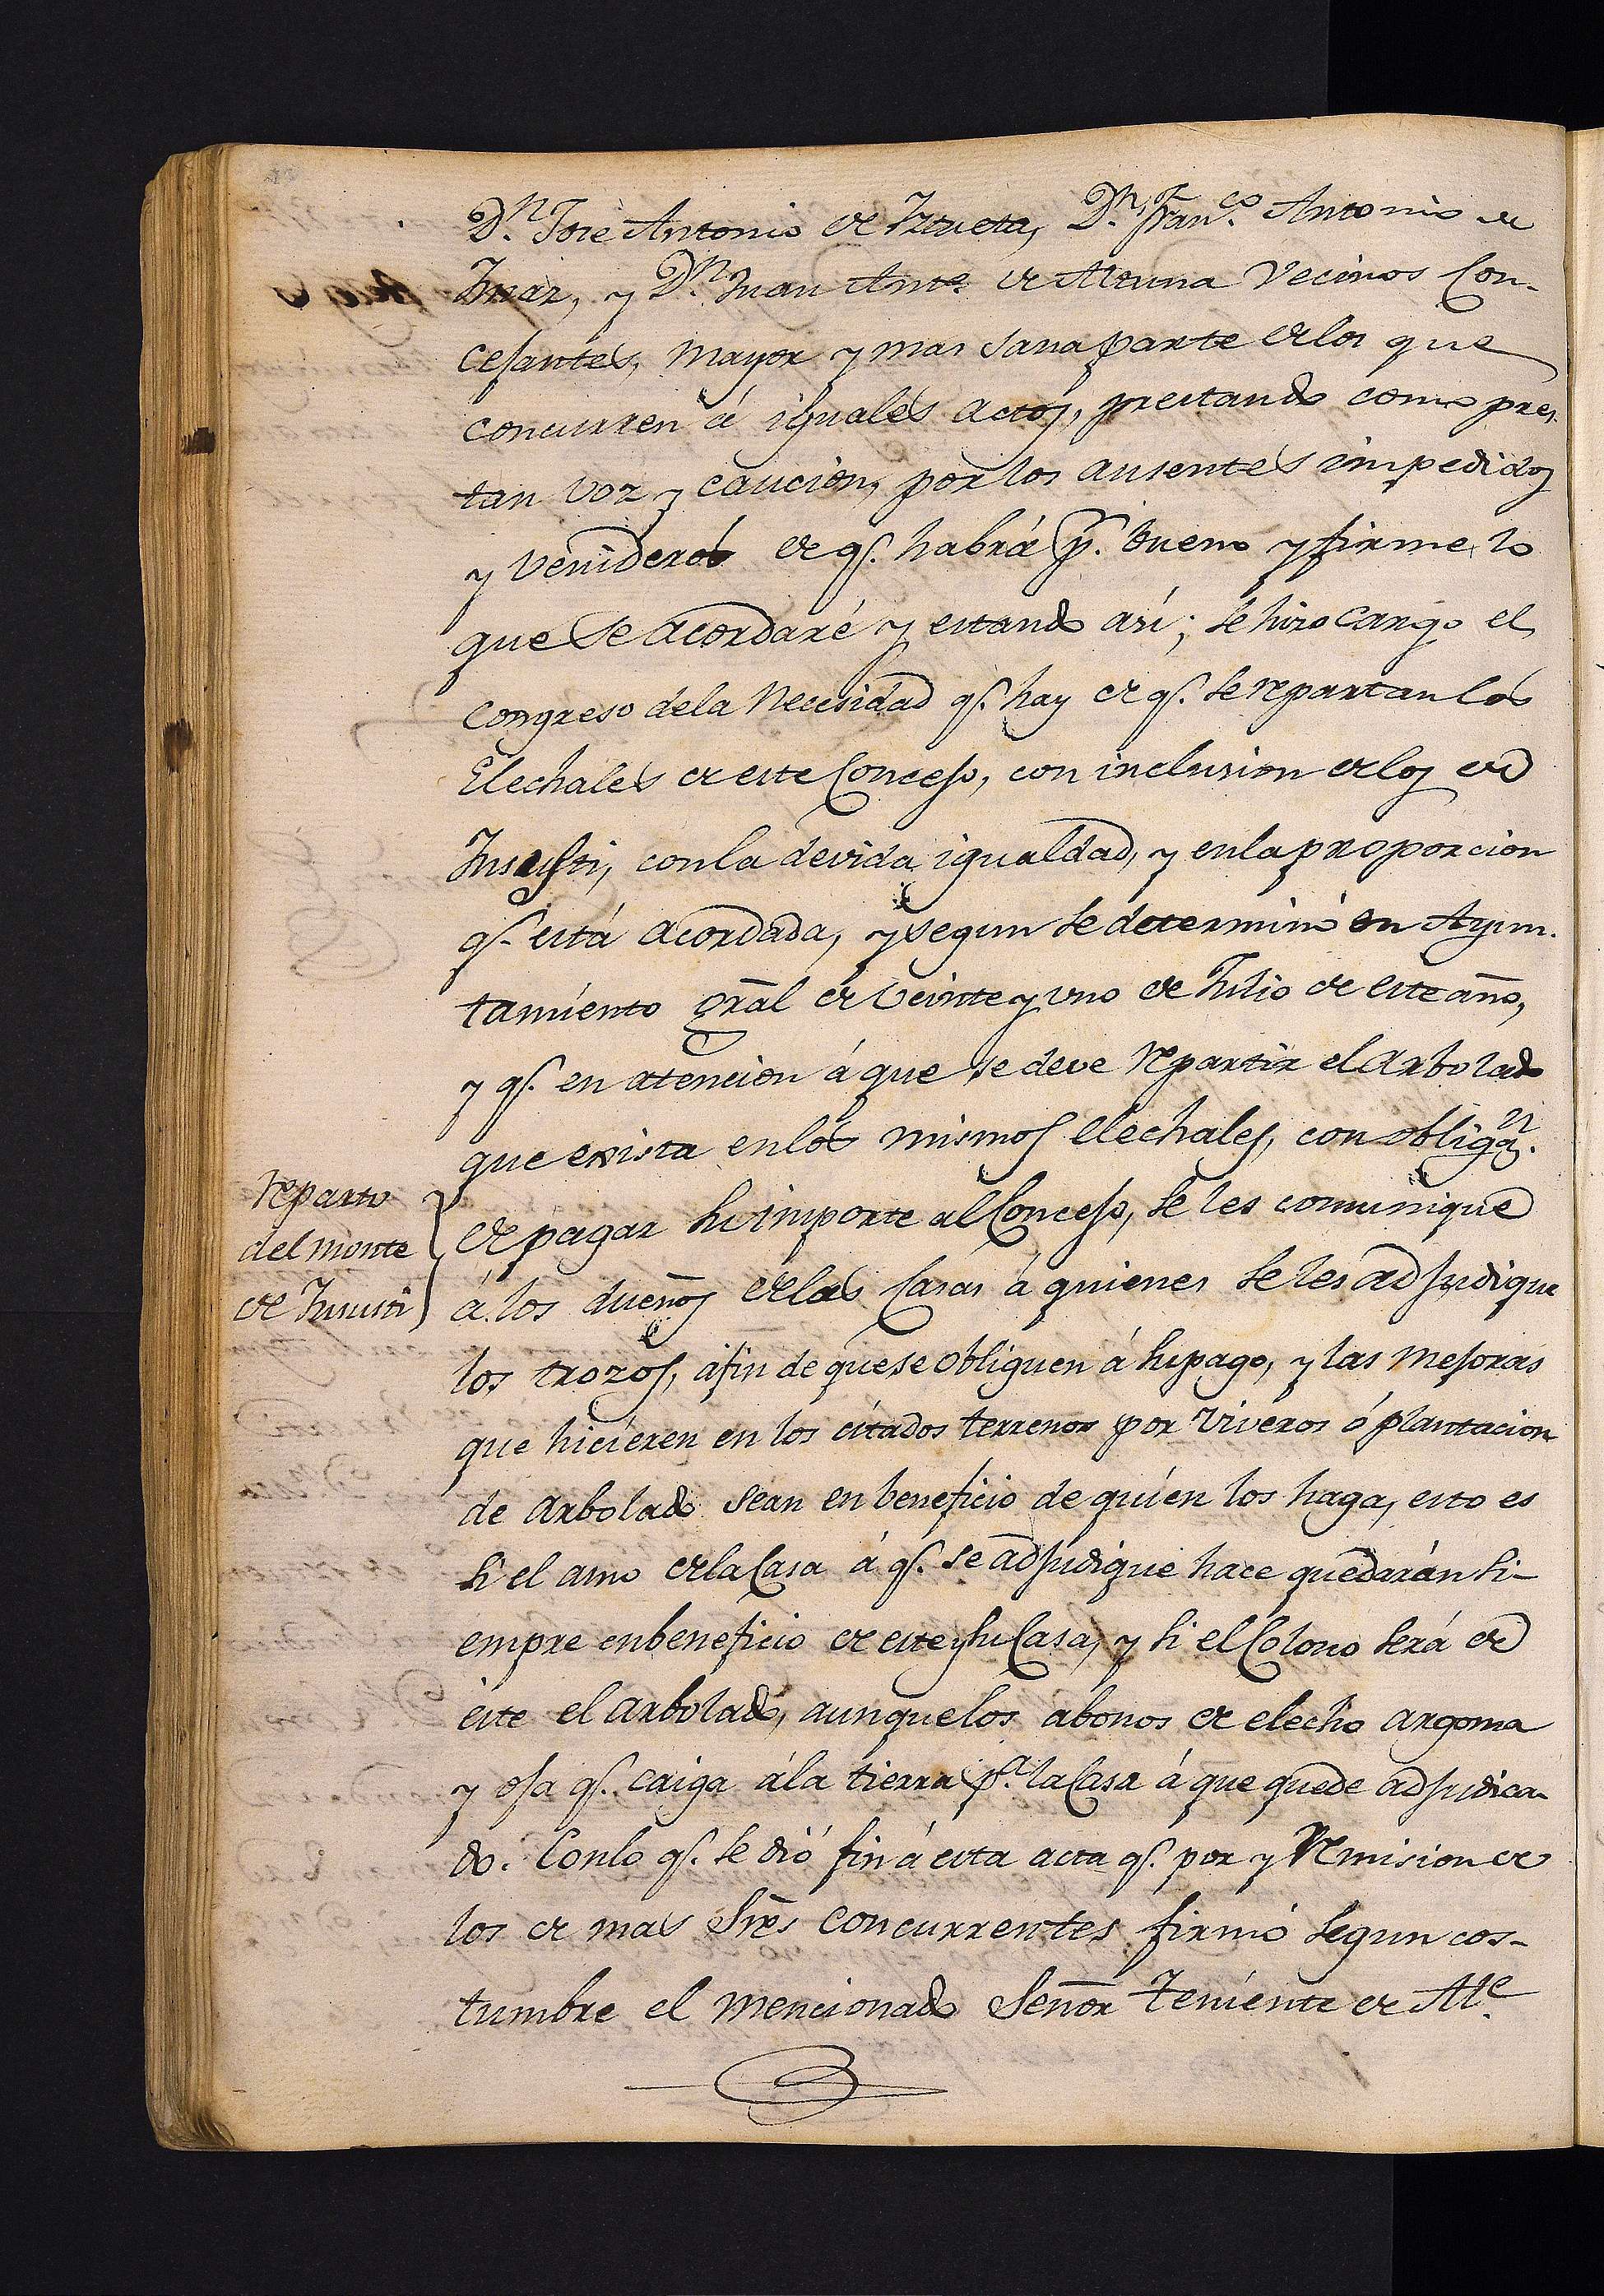 Dⁿ. José Antonio de Iztueta, Dⁿ. Franᶜᵒ. Antonio de
Inaz, y Dⁿ. Juan Antᵒ. de Altuna Vecinos Con-
cejantes, mayor y mas sana parte de los que
concurren á iguales actos, prestando como pres-
tan voz y caucion, por los ausentes impedidos
y venideros de q̃. habrá p̃. bueno y firme lo
que se acordaré y estando así; se hizo cargo el
congreso dela Necesidad q̃. hay de q̃. se repartan los
Elechales de este Concejo, con inclusion delos de
Insusti, conla devida igualdad, y enla proporcion
q̃. está acordada, y segun se determinó en Ayun-
tamiento gr̃al de veinte y uno de Julio de este año,
y q̃. en atencion á que se deve repartir el Arbolado
que exista enlos mismos elechales, con obligaⁿ.
de pagar su importe al Concejo, se les comunique
á los dueños delas Casas á quienes se les adjudique
los trozos, áfin de quese obliguen á su pago, y las mejoras
que hicieren en los citados terrenos por viveros ó plantacion
de arbolado sean en beneficio de quién los haga, esto es
si el amo dela Casa á q̃. se adjudique hace quedarán si-
empre enbeneficio de este y su Casa, y si el Colono será de
éste el arbolado, aunquelos abonos de elecho argoma
y oja q̃. caiga ála tierra pᵃ. la Casa á que quede adjudica-
do. Conlo q̃. se dió fin á esta acta q̃. por y Remision de
los de mas Sr̃es concurrentes firmó segun cos-
tumbre el mencionado Señor Teniente de Alᵉ.
reparto
del monte
de Insusti